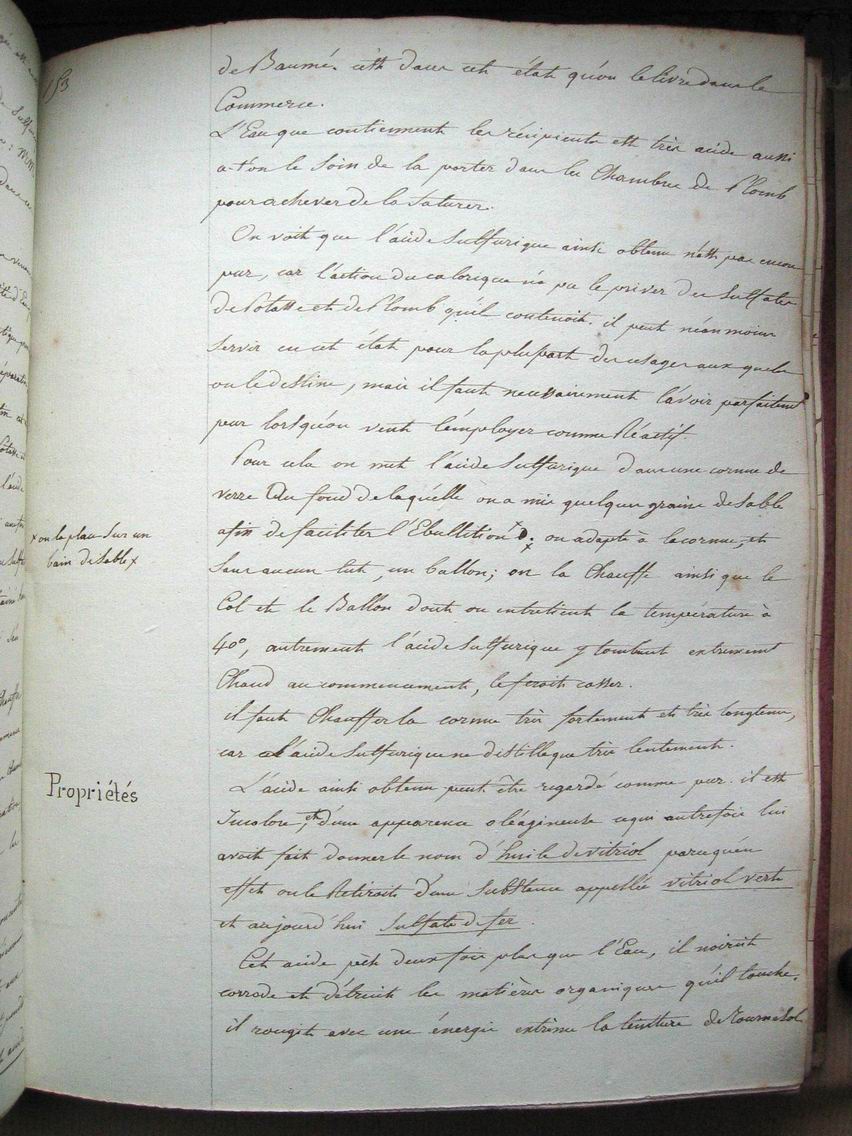 153
de Baumé. c'est dans cet état qu'on le livre dans le
Commerce.
L'Eau que contiennent les récipients est très acide aussi
a-t'on le Soin de la porter dans les Chambres de Plomb
pour achever de la Saturer.
On voit que l'acide Sulfurique ainsi obtenu n'est pas encore
pur, car l'action du calorique n'a pu le priver des Sulfates
de Potasse et de Plomb qu'il contenoit. il peut néanmoins
Servir en cet état pour la pluspart des usages aux quels
on le destine, mais il faut necessairement l'avoir parfaitemt
pur lorsqu'on veut l'employer comme Réactif
Pour cela on met l'acide Sulfurique dans une cornue de
verre au fond de laquelle on a mis quelques grains de Sable
afin de faciliter l'Ebullition x. on adapte à la cornue, et
x on la place Sur un
bain de Sable x
Sans aucun lut, un ballon; on la Chauffe ainsi que le
Col et le Ballon dont on entretient la température à
40°, autrement l'acide Sulfurique y tombant extremement
Chaud au commencement, le feroit casser.
il faut Chauffer la cornue très fortement et très longtems,
car l'acide Sulfurique ne distille que très lentement.
Propriétés
L'acide ainsi obtenu peut être regardé comme pur. il est
Incolore, et d'une apparence oléagineuse ce qui autrefois lui
avoit fait donner le nom d'huile de vitriol parcequ'en
effet on le Retiroit d'une Substance appellée vitriol vert
et aujourd'hui Sulfate de fer.
Cet acide pèse deux fois plus que l'Eau, il noircit
corrode et détruit les matières organiques qu'il touche.
il rougit avec une énergie extrême la teinture de tournesol